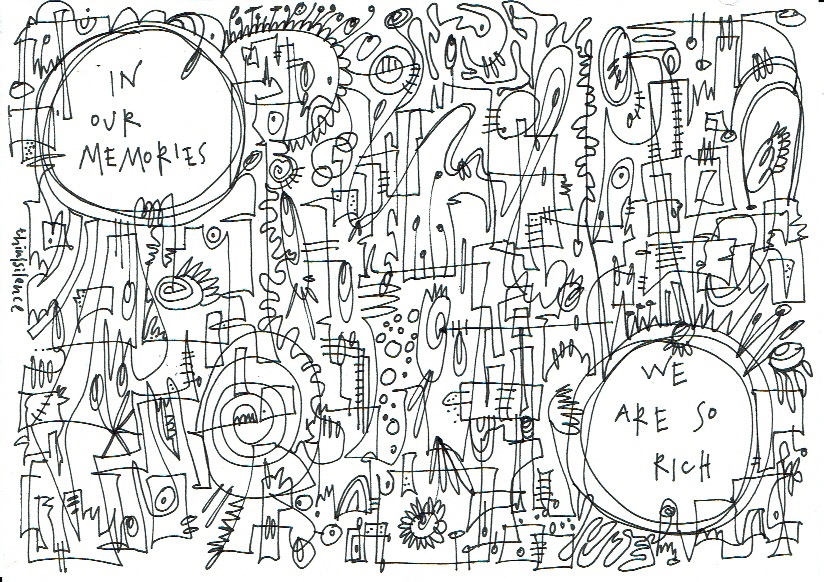 IN
OUR
MEMORIES
thinsilence
WE
ARE SO
RICH